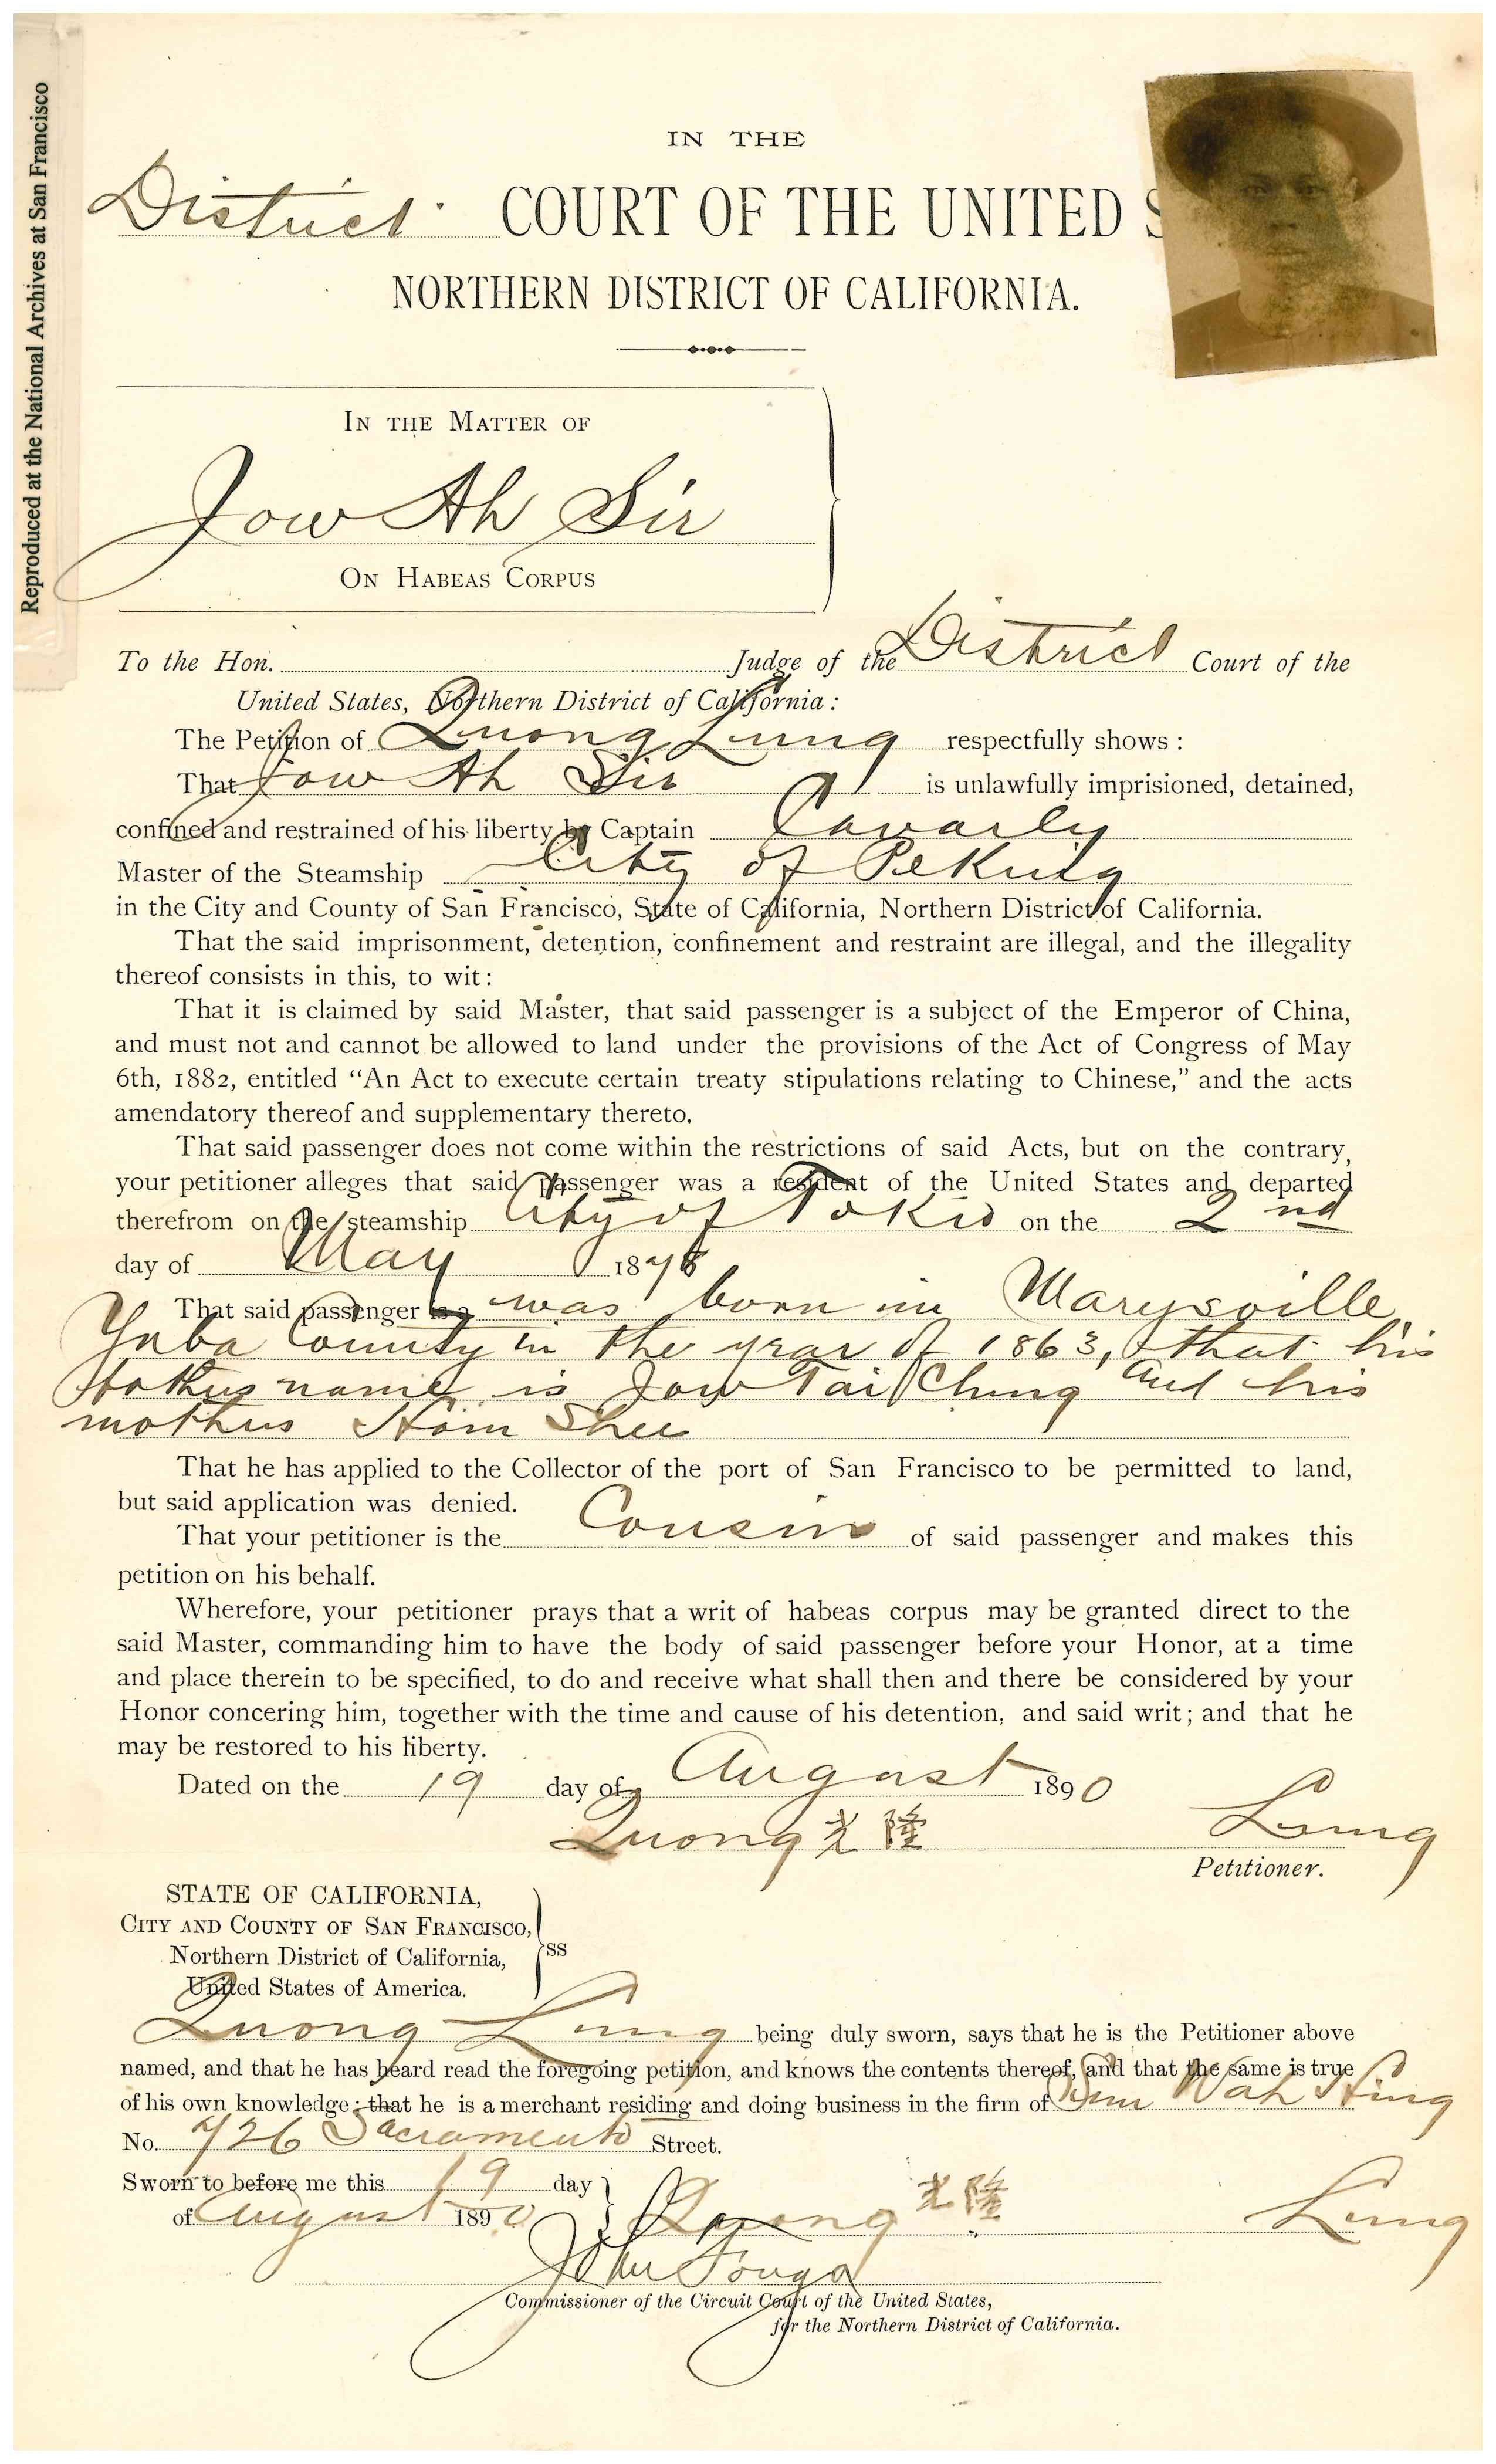 Reproduced at the National Archives at San Francisco
IN THE
District COURT OF THE UNITED S
NORTHERN DISTRICT OF CALIFORNIA.
IN THE MATTER OF
Jow Ah Sir
ON HABEAS CORPUS
To the Hon. Judge of the District Court of the
United States, Northern District of California:
The Petition of Quong Lung respectfully shows:
That Jow Ah Sir is unlawfully imprisioned, detained,
confined and restrained of his liberty by Captain Cavarly
Master of the Steamship City of Peking
in the City and County of San Francisco, State of California, Northern District of California.
That the said imprisonment, detention, confinement and restraint are illegal, and the illegality
thereof consists in this, to wit:
That it is claimed by said Master, that said passenger is a subject of the Emperor of China,
and must not and cannot be allowed to land under the provisions of the Act of Congress of May
6th, 1882, entitled “An Act to execute certain treaty stipulations relating to Chinese,” and the acts
amendatory thereof and supplementary thereto.
That said passenger does not come within the restrictions of said Acts, but on the contrary,
your petitioner alleges that said passenger was a resident of the United States and departed
therefrom on the steamship City of Tokio on the 2nd
day of May 1878
That said passenger is a was born in Marysville,
Yuba County in the year of 1863, that his
fathers name is Jow Tai Chung and his
mothers Hom Shee
That he has applied to the Collector of the port of San Francisco to be permitted to land,
but said application was denied.
That your petitioner is the Cousin of said passenger and makes this
petition on his behalf.
Wherefore, your petitioner prays that a writ of habeas corpus may be granted direct to the
said Master, commanding him to have the body of said passenger before your Honor, at a time
and place therein to be specified, to do and receive what shall then and there be considered by your
Honor concering him, together with the time and cause of his detention, and said writ; and that he
may be restored to his liberty.
Dated on the 19 day of August 1890
Quong 光隆 Lung
Petitioner.
STATE OF CALIFORNIA,
CITY AND COUNTY OF SAN FRANCISCO,
Northern District of California, ss
United States of America.
Quong Lung being duly sworn, says that he is the Petitioner above
named, and that he has heard read the foregoing petition, and knows the contents thereof, and that the same is true
of his own knowledge; that he is a merchant residing and doing business in the firm of Wah Hing
No. 726 Sacramento Street.
Sworn to before me this 19 day
of August 1890 Quong 光隆 Lung
John
Commissioner of the Circuit Court of the United States,
for the Northern District of California.